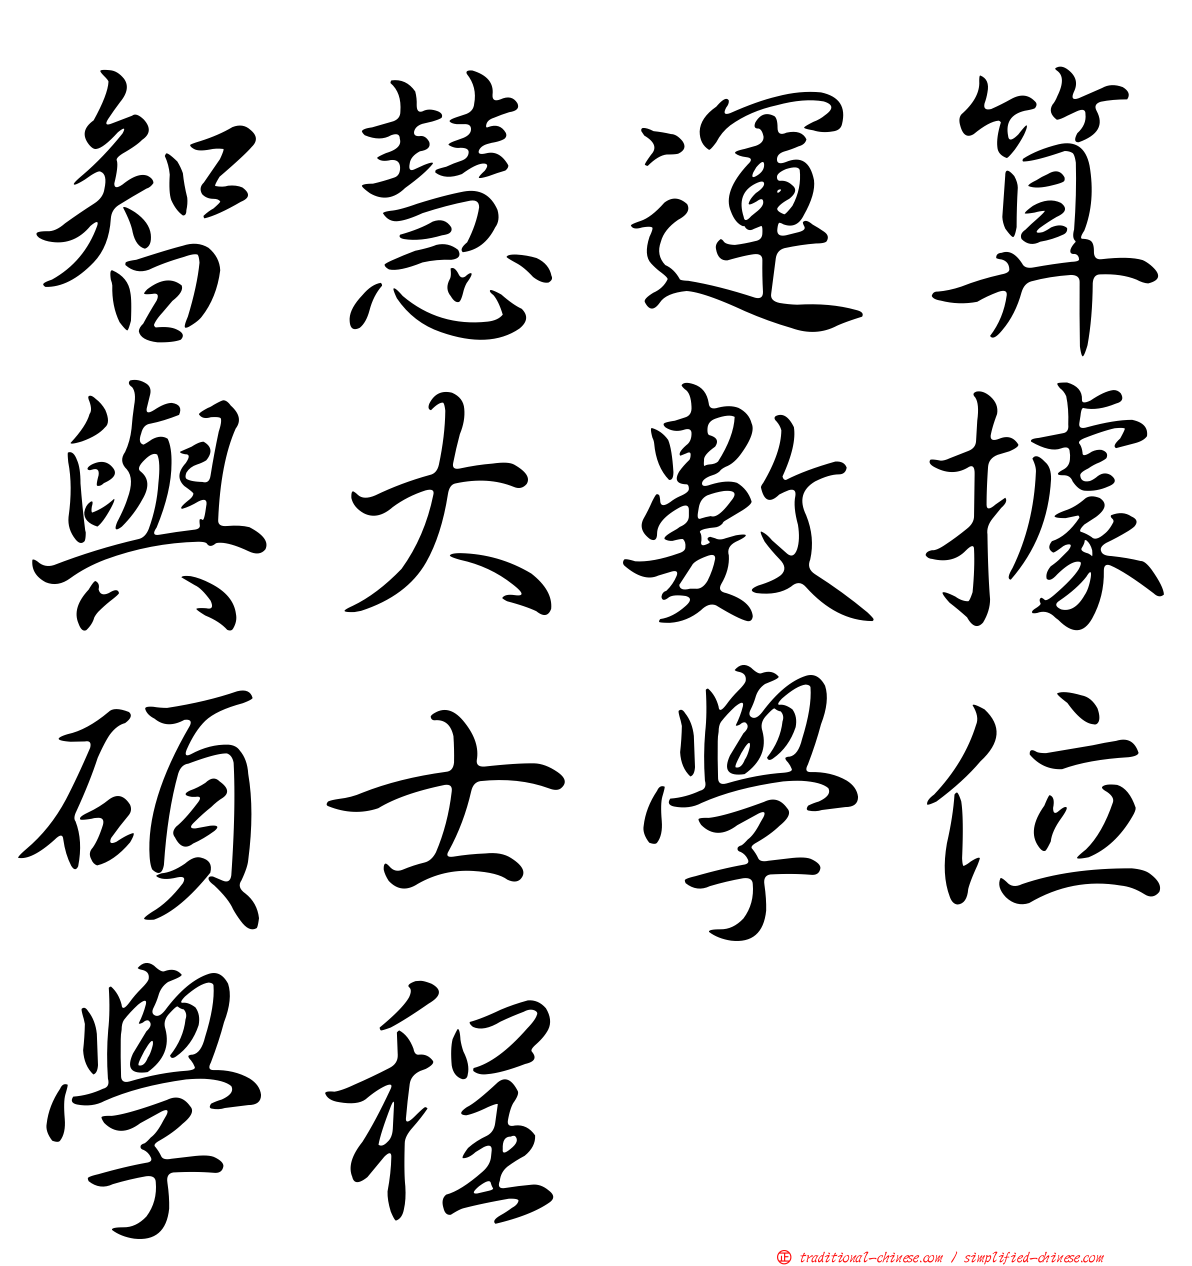 智慧運算
與大數據
碩士學位
學程
正 traditional-chinese.com / simplified-chinese.com